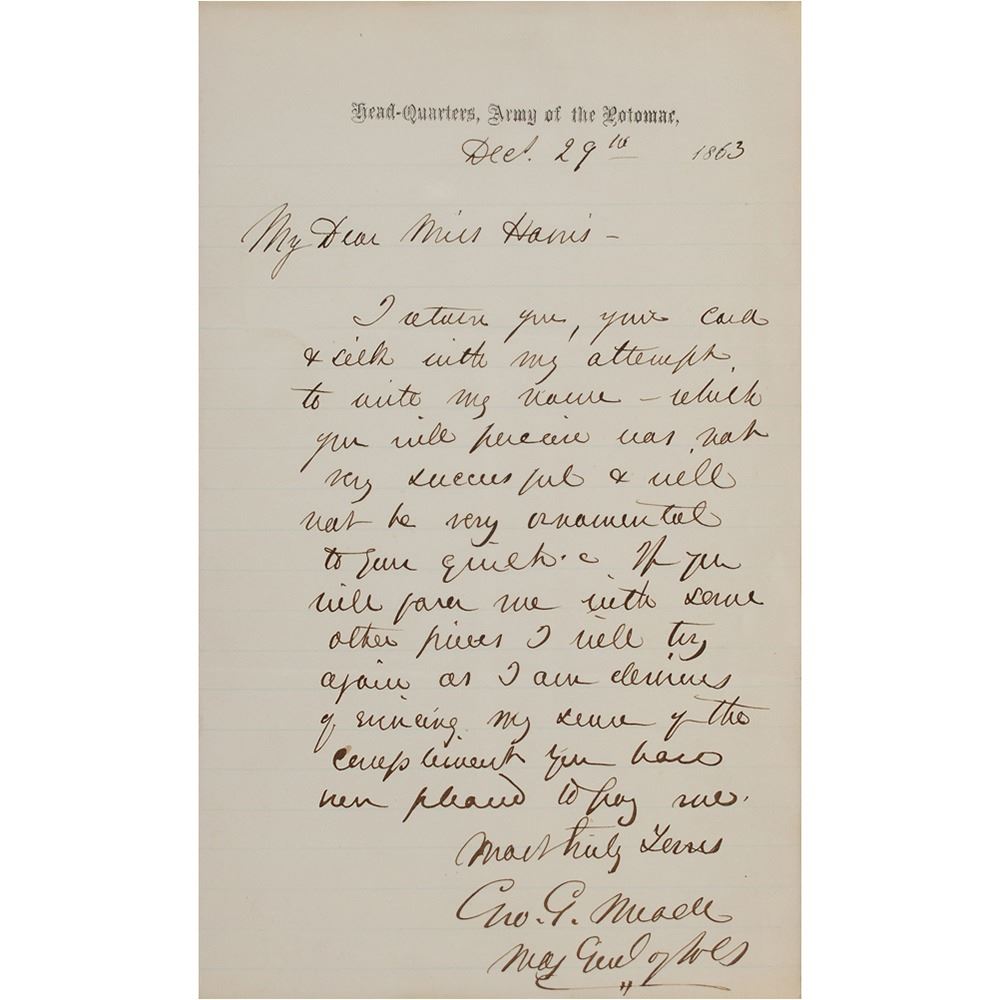 Head-Quarters, Army of the Potomac,
Dec. 29th 1863
My Dear Miss Harris -
I return you, your card
& silk with my attempt
to write my name - which
you will perceive was not
very successful & will
not be very ornamental
to your quilt. If you
will favor me with some
other pieces I will try
again as I am desirous
of evincing my sense of the
compliment you have
been pleased to pay me.
Most truly Yours
Geo. G. Meade
Maj Genl of Vols